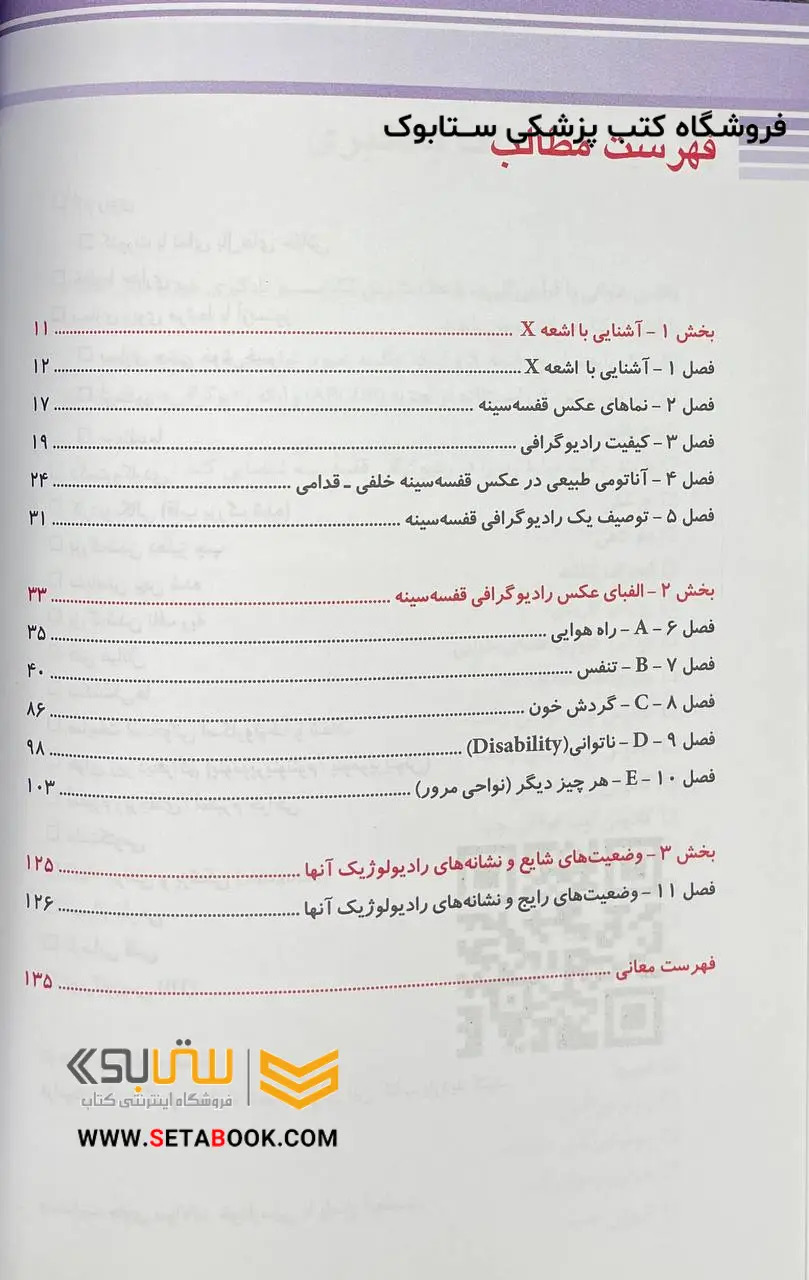 فروشگاه کتب پزشکی ستابوک
فهرست مطالب
بخش ۱ - آشنایی با اشعه X ........ ۱۱
فصل ۱ - آشنایی با اشعه X ........ ۱۲
فصل ۲ - نماهای عکس قفسه‌سینه ........ ۱۷
فصل ۳ - کیفیت رادیوگرافی ........ ۱۹
فصل ۴ - آناتومی طبیعی در عکس قفسه‌سینه خلفی - قدامی ........ ۲۴
فصل ۵ - توصیف یک رادیوگرافی قفسه‌سینه ........ ۳۱
بخش ۲ - الفبای عکس رادیوگرافی قفسه‌سینه ........ ۳۳
فصل ۶ - A - راه هوایی ........ ۳۵
فصل ۷ - B - تنفس ........ ۴۰
فصل ۸ - C - گردش خون ........ ۸۶
فصل ۹ - D - ناتوانی(Disability) ........ ۹۸
فصل ۱۰ - E - هر چیز دیگر (نواحی مرور) ........ ۱۰۳
بخش ۳ - وضعیت‌های شایع و نشانه‌های رادیولوژیک آنها ........ ۱۲۵
فصل ۱۱ - وضعیت‌های رایج و نشانه‌های رادیولوژیک آنها ........ ۱۲۶
فهرست معانی ........ ۱۳۵
ستابوک
فروشگاه اینترنتی کتاب
WWW.SETABOOK.COM